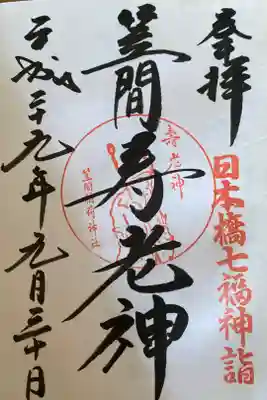 奉拝
日本橋七福神詣
笠間寿老神
寿老神
笠間稲荷神社
平成二十九年元月三十日